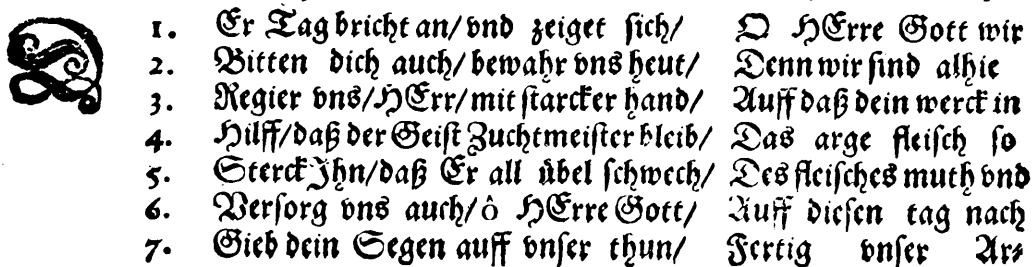 D 1. Er Tag bricht an/ vnd zeiget sich/ O HErre Gott wir
2. Bitten dich auch/ bewahr vns heut/ Denn wir sind alhie
3. Regier vns/ HErr/ mit starcker hand/ Auff daß dein werck in
4. Hilff/ daß der Geist Zuchtmeister bleib/ Das arge fleisch so
5. Sterck Jhn/ daß Er all übel schwech/ Des fleisches muth vnd
6. Versorg vns auch/ ô HErre Gott/ Auff diesen tag nach
7. Gieb dein Segen auff vnser thun/ Fertig vnser Ar⸗